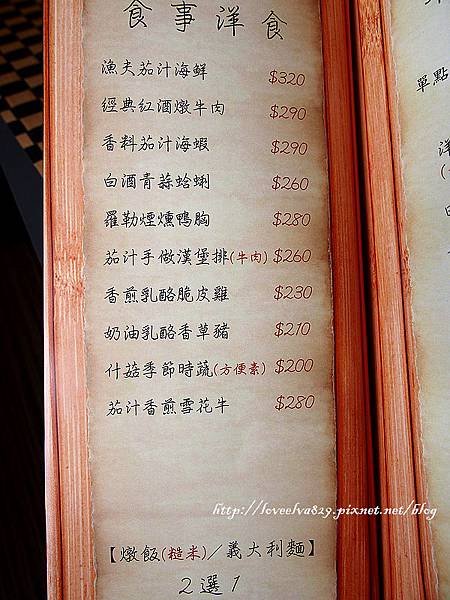 食事洋食
漁夫茄汁海鮮 $320
經典紅酒燉牛肉 $290
香料茄汁海蝦 $290
白酒青蒜蛤蜊 $260
羅勒煙燻鴨胸 $280
茄汁手做漢堡排(牛肉) $260
香煎乳酪脆皮雞 $230
奶油乳酪香草豬 $210
什菇季節時蔬(方便素) $200
茄汁香煎雪花牛 $280
【燉飯(糙米)／義大利麵】
2選1
單點
洋
http://loveelva829.pixnet.net/blog